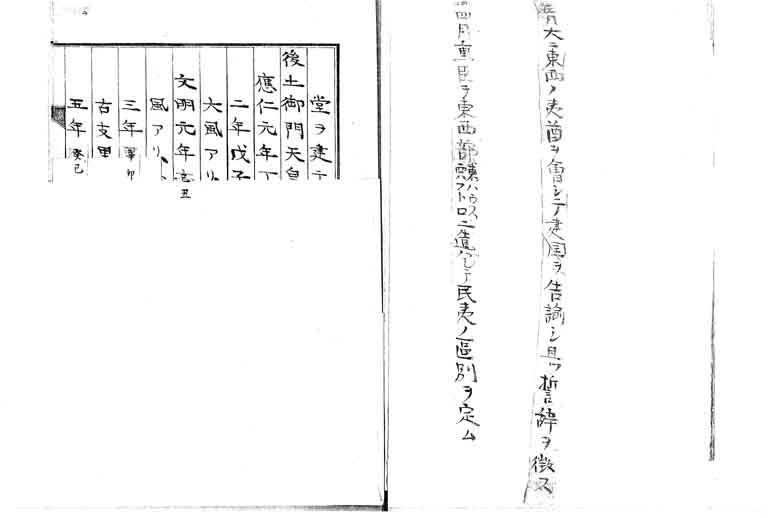 大ニ東西ノ夷酋ヲ會シテ建国ヲ告諭シ且ツ誓辞ヲ徴ス
四月重臣ヲ東西部東ハウス西フトロニ遣ハシテ民夷ノ區別ヲ定ム
堂ヲ建テ
後土御門天皇
應仁元年丁
二年戊子
大風アリ
文明元年己丑
風アリ
三年辛卯
古支里
五年癸巳